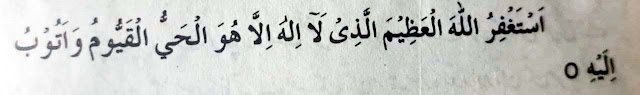 اَسْتَغْفِرُ اللهَ الْعَظِيْمَ الَّذِىْ لَآ اِلٰهَ اِلَّا هُوَ الْحَىُّ الْقَيُّومُ وَاَتُوْبُ
اِلَيْهِ ○